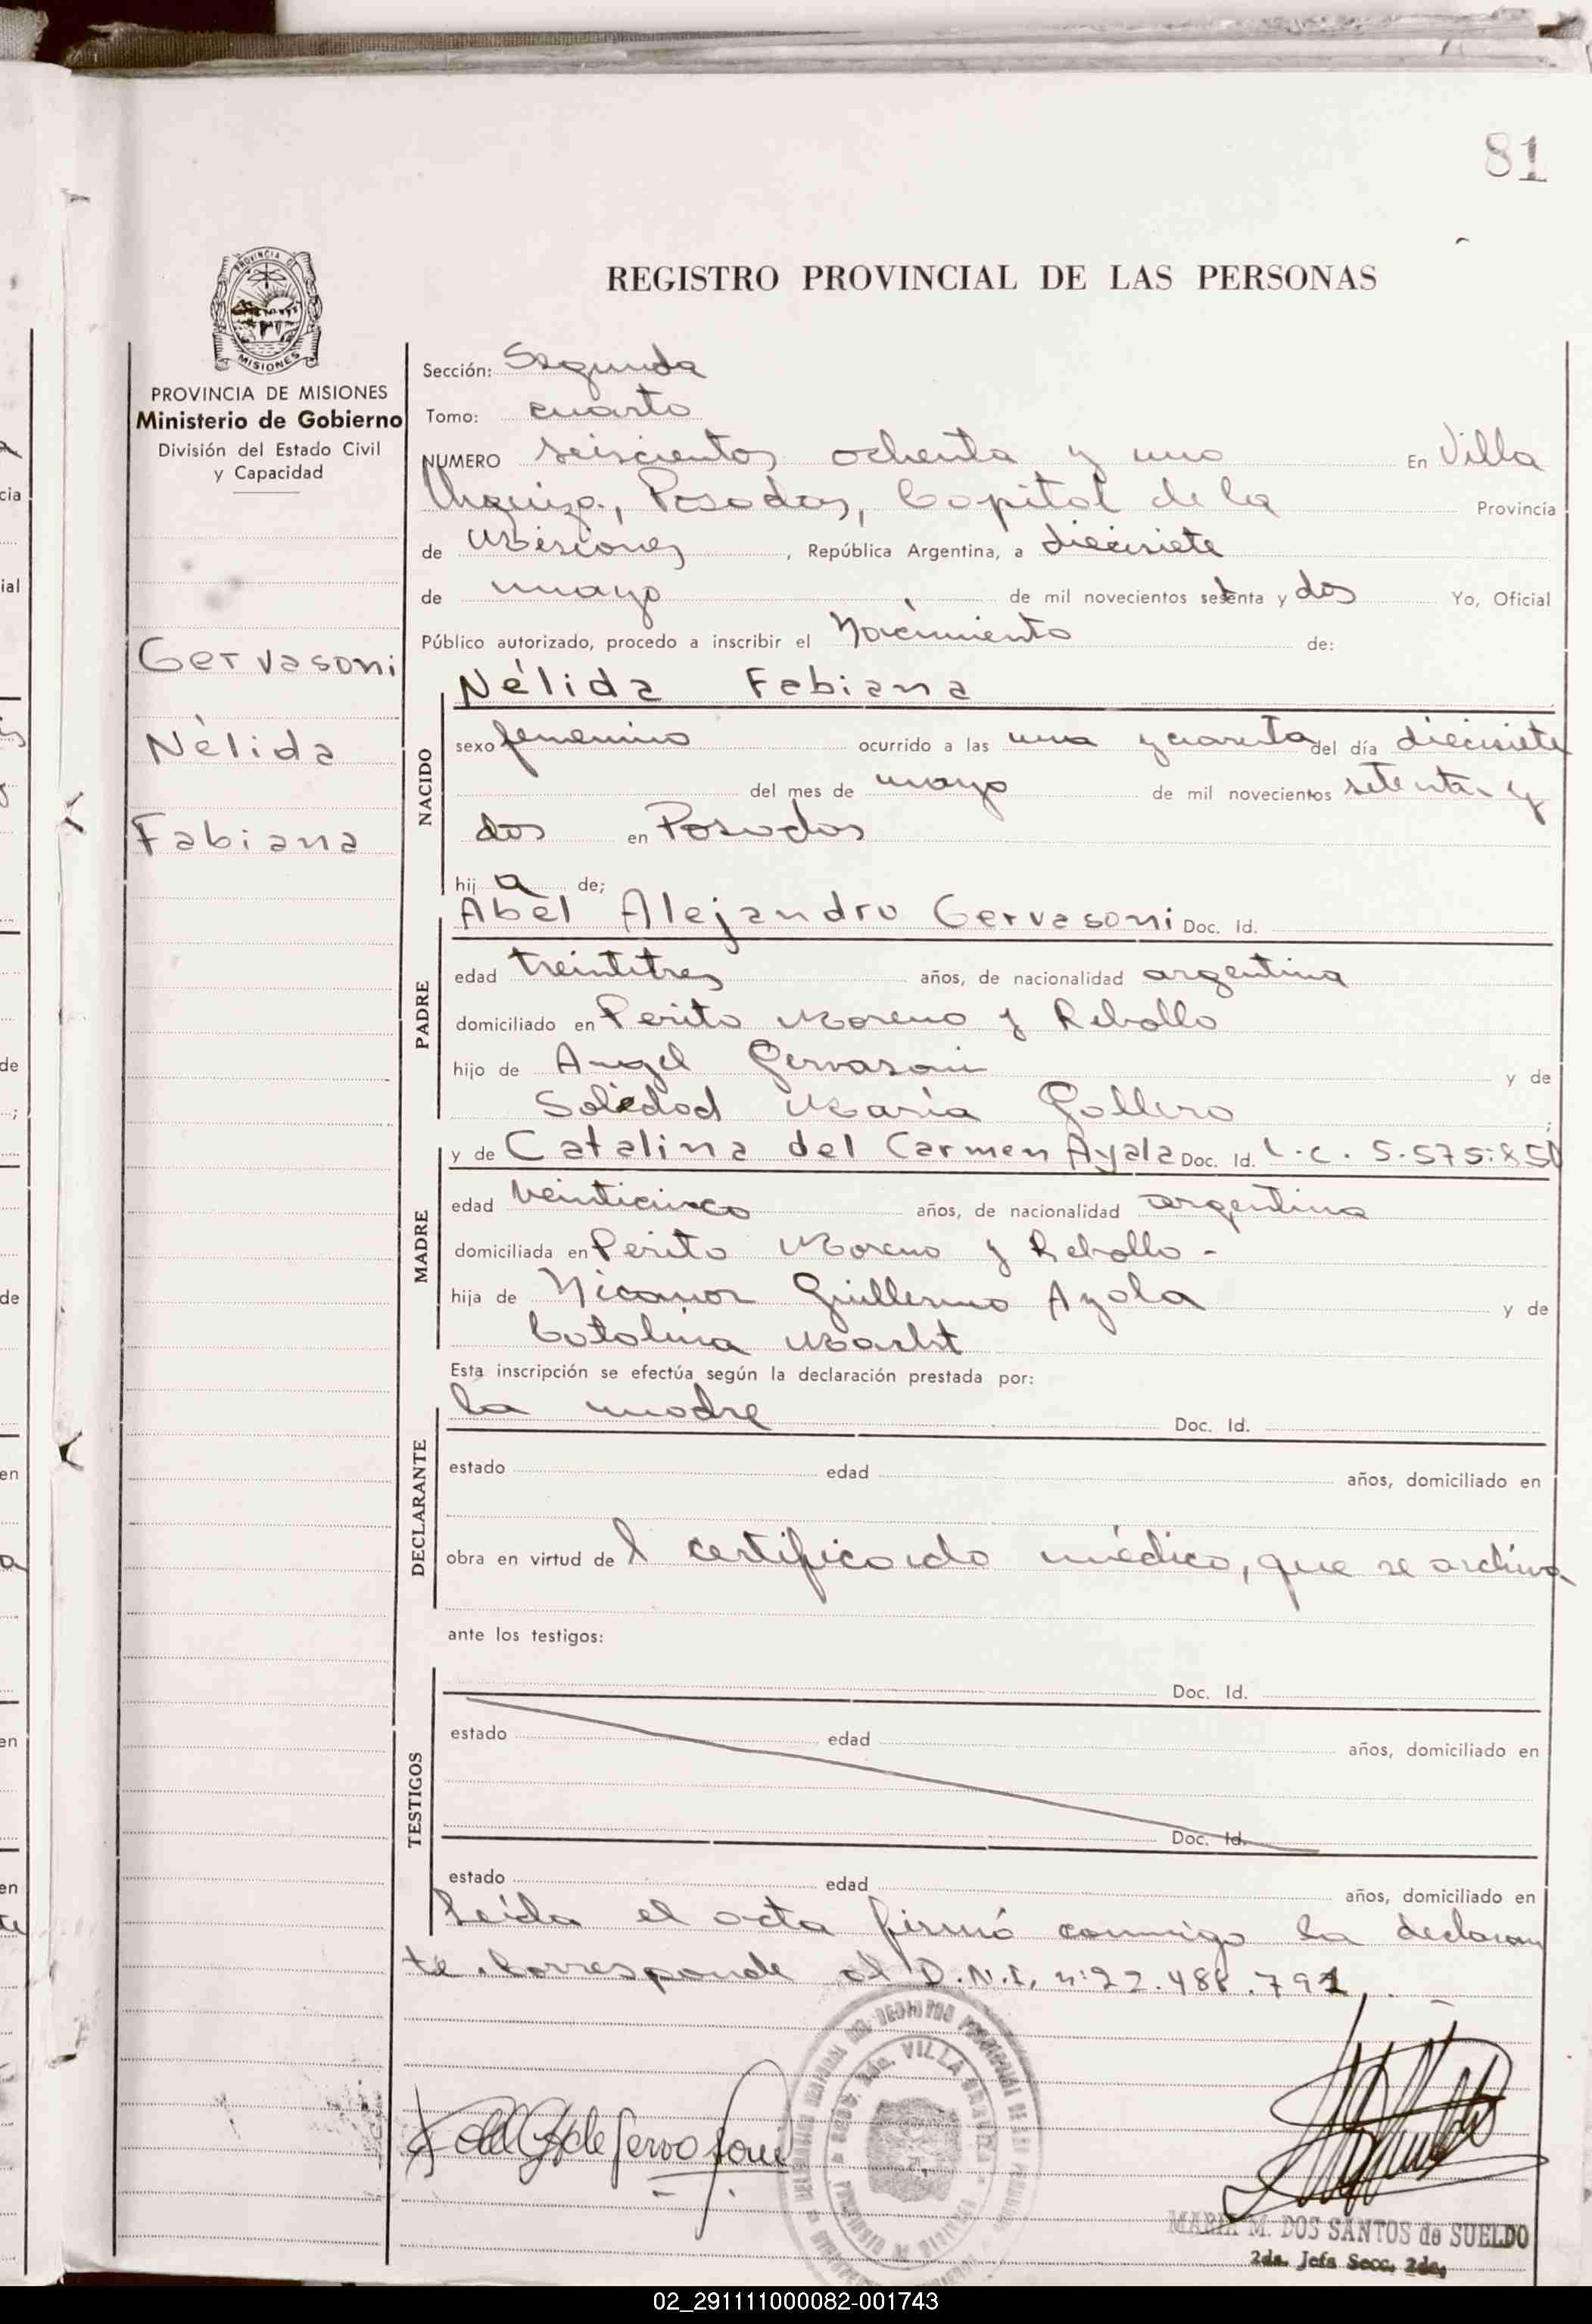 81
REGISTRO PROVINCIAL DE LAS PERSONAS
PROVINCIA DE MISIONES
Ministerio de Gobierno
División del Estado Civil
y Capacidad
Gervasoni
Nélida
Fabiana
Sección: Segunda
Tomo: cuarto
NUMERO seiscientos ochenta y uno En Villa
Urquiza, Posadas, Capital de la Provincia
de Misiones, República Argentina, a diecisiete
de mayo de mil novecientos setenta y dos Yo, Oficial
Público autorizado, procedo a inscribir el Nacimiento de:
NACIDO
Nélida Fabiana
sexo femenino ocurrido a las una y cuarta del día diecisiete
del mes de mayo de mil novecientos setenta y
dos en Posadas
hij a de;
PADRE
Abel Alejandro Gervasoni Doc. Id.
edad treintitres años, de nacionalidad argentina
domiciliado en Perito Moreno y Rebollo
hijo de Angel Gervasoni y de
Soledad María Gollero ;
MADRE
y de Catalina del Carmen Ayala Doc. Id. L.C. 5.575.850
edad veinticinco años, de nacionalidad argentina
domiciliada en Perito Moreno y Rebollo -
hija de Nicanor Guillermo Ayala y de
Catalina
Esta inscripción se efectúa según la declaración prestada por:
DECLARANTE
la madre Doc. Id.
estado edad años, domiciliado en
obra en virtud de l certificado médico, que se archiva
ante los testigos:
TESTIGOS
Doc. Id.
estado edad años, domiciliado en
Doc. Id.
estado edad años, domiciliado en
Leída el acta firmó conmigo la declaran
te. Corresponde al D.N.I. n: 22.488.791
MARIA M. DOS SANTOS de SUELDO
2da. Jefa Secc. 2da.
02_291111000082-001743